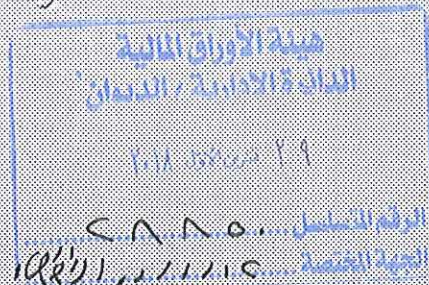 هيئة الأوراق المالية
الدائرة الادارية / الديوان
٢٩ تشرين الأول ٢٠١٨
الرقم المتسلسل ٢٨٨٥٠
الجهة المختصة